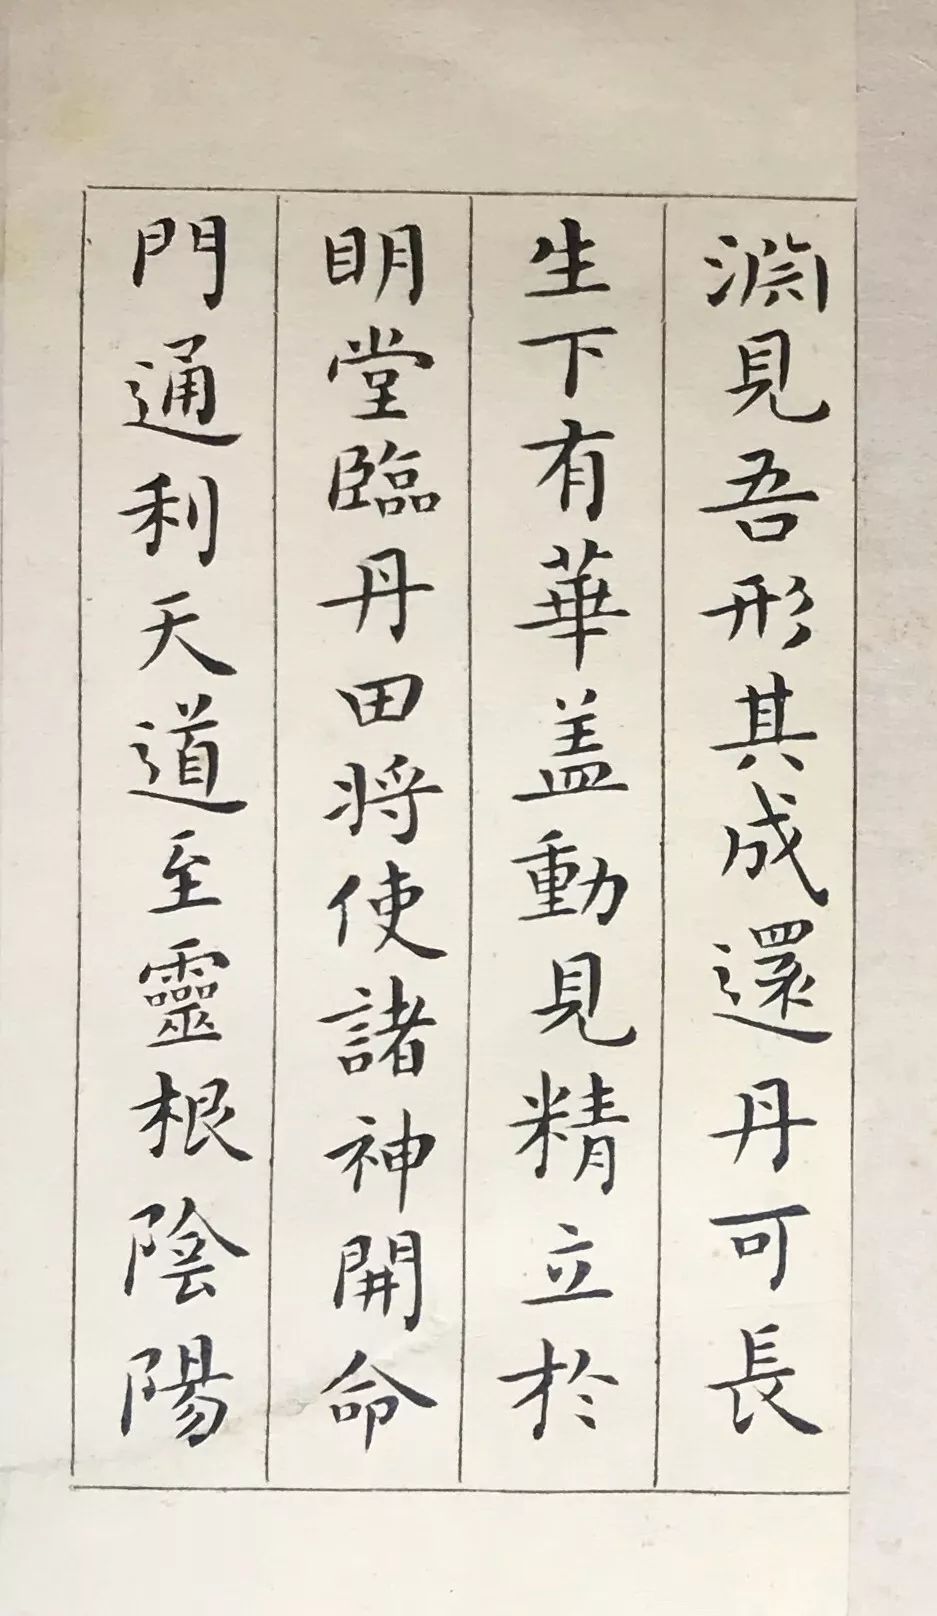 淵見吾形其成還丹可長
生下有華盖動見精立於
明堂臨丹田将使諸神開命
門通利天道至靈根陰陽